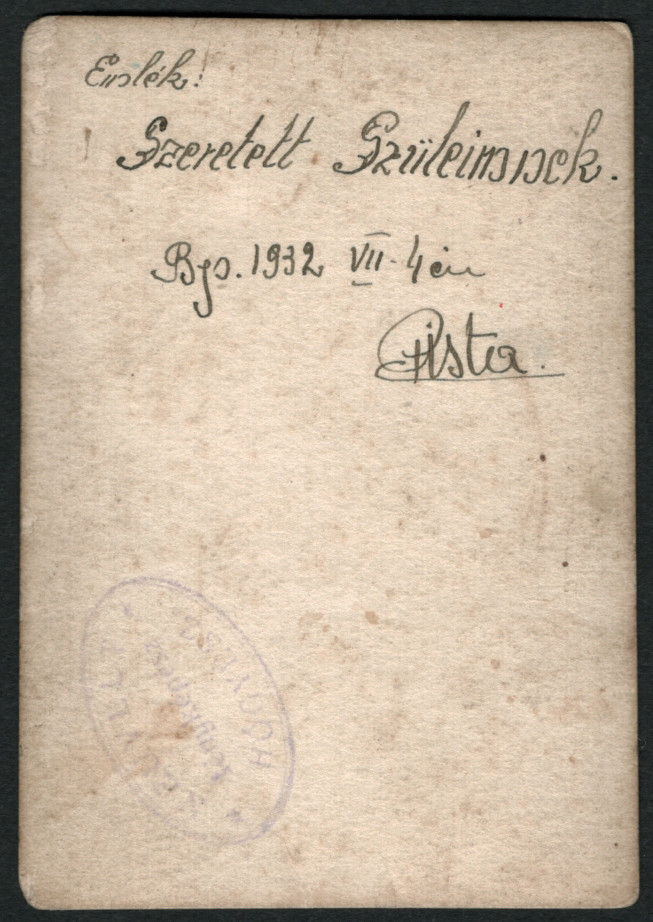 Emlék:
Szeretett Szüleimnek.
Bp. 1932 VII. 4 én
Pista.